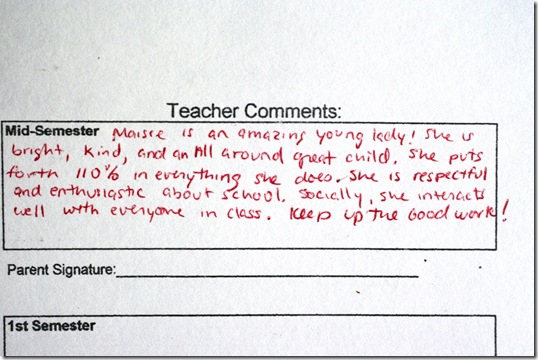 Teacher Comments:
Mid-Semester Maisie is an amazing young lady! She is
bright, kind, and an All around great child. She puts
forth 110% in everything she does. She is respectful
and enthusiastic about school. Socially, she interacts
well with everyone in class. Keep up the Good work!
Parent Signature:
1st Semester